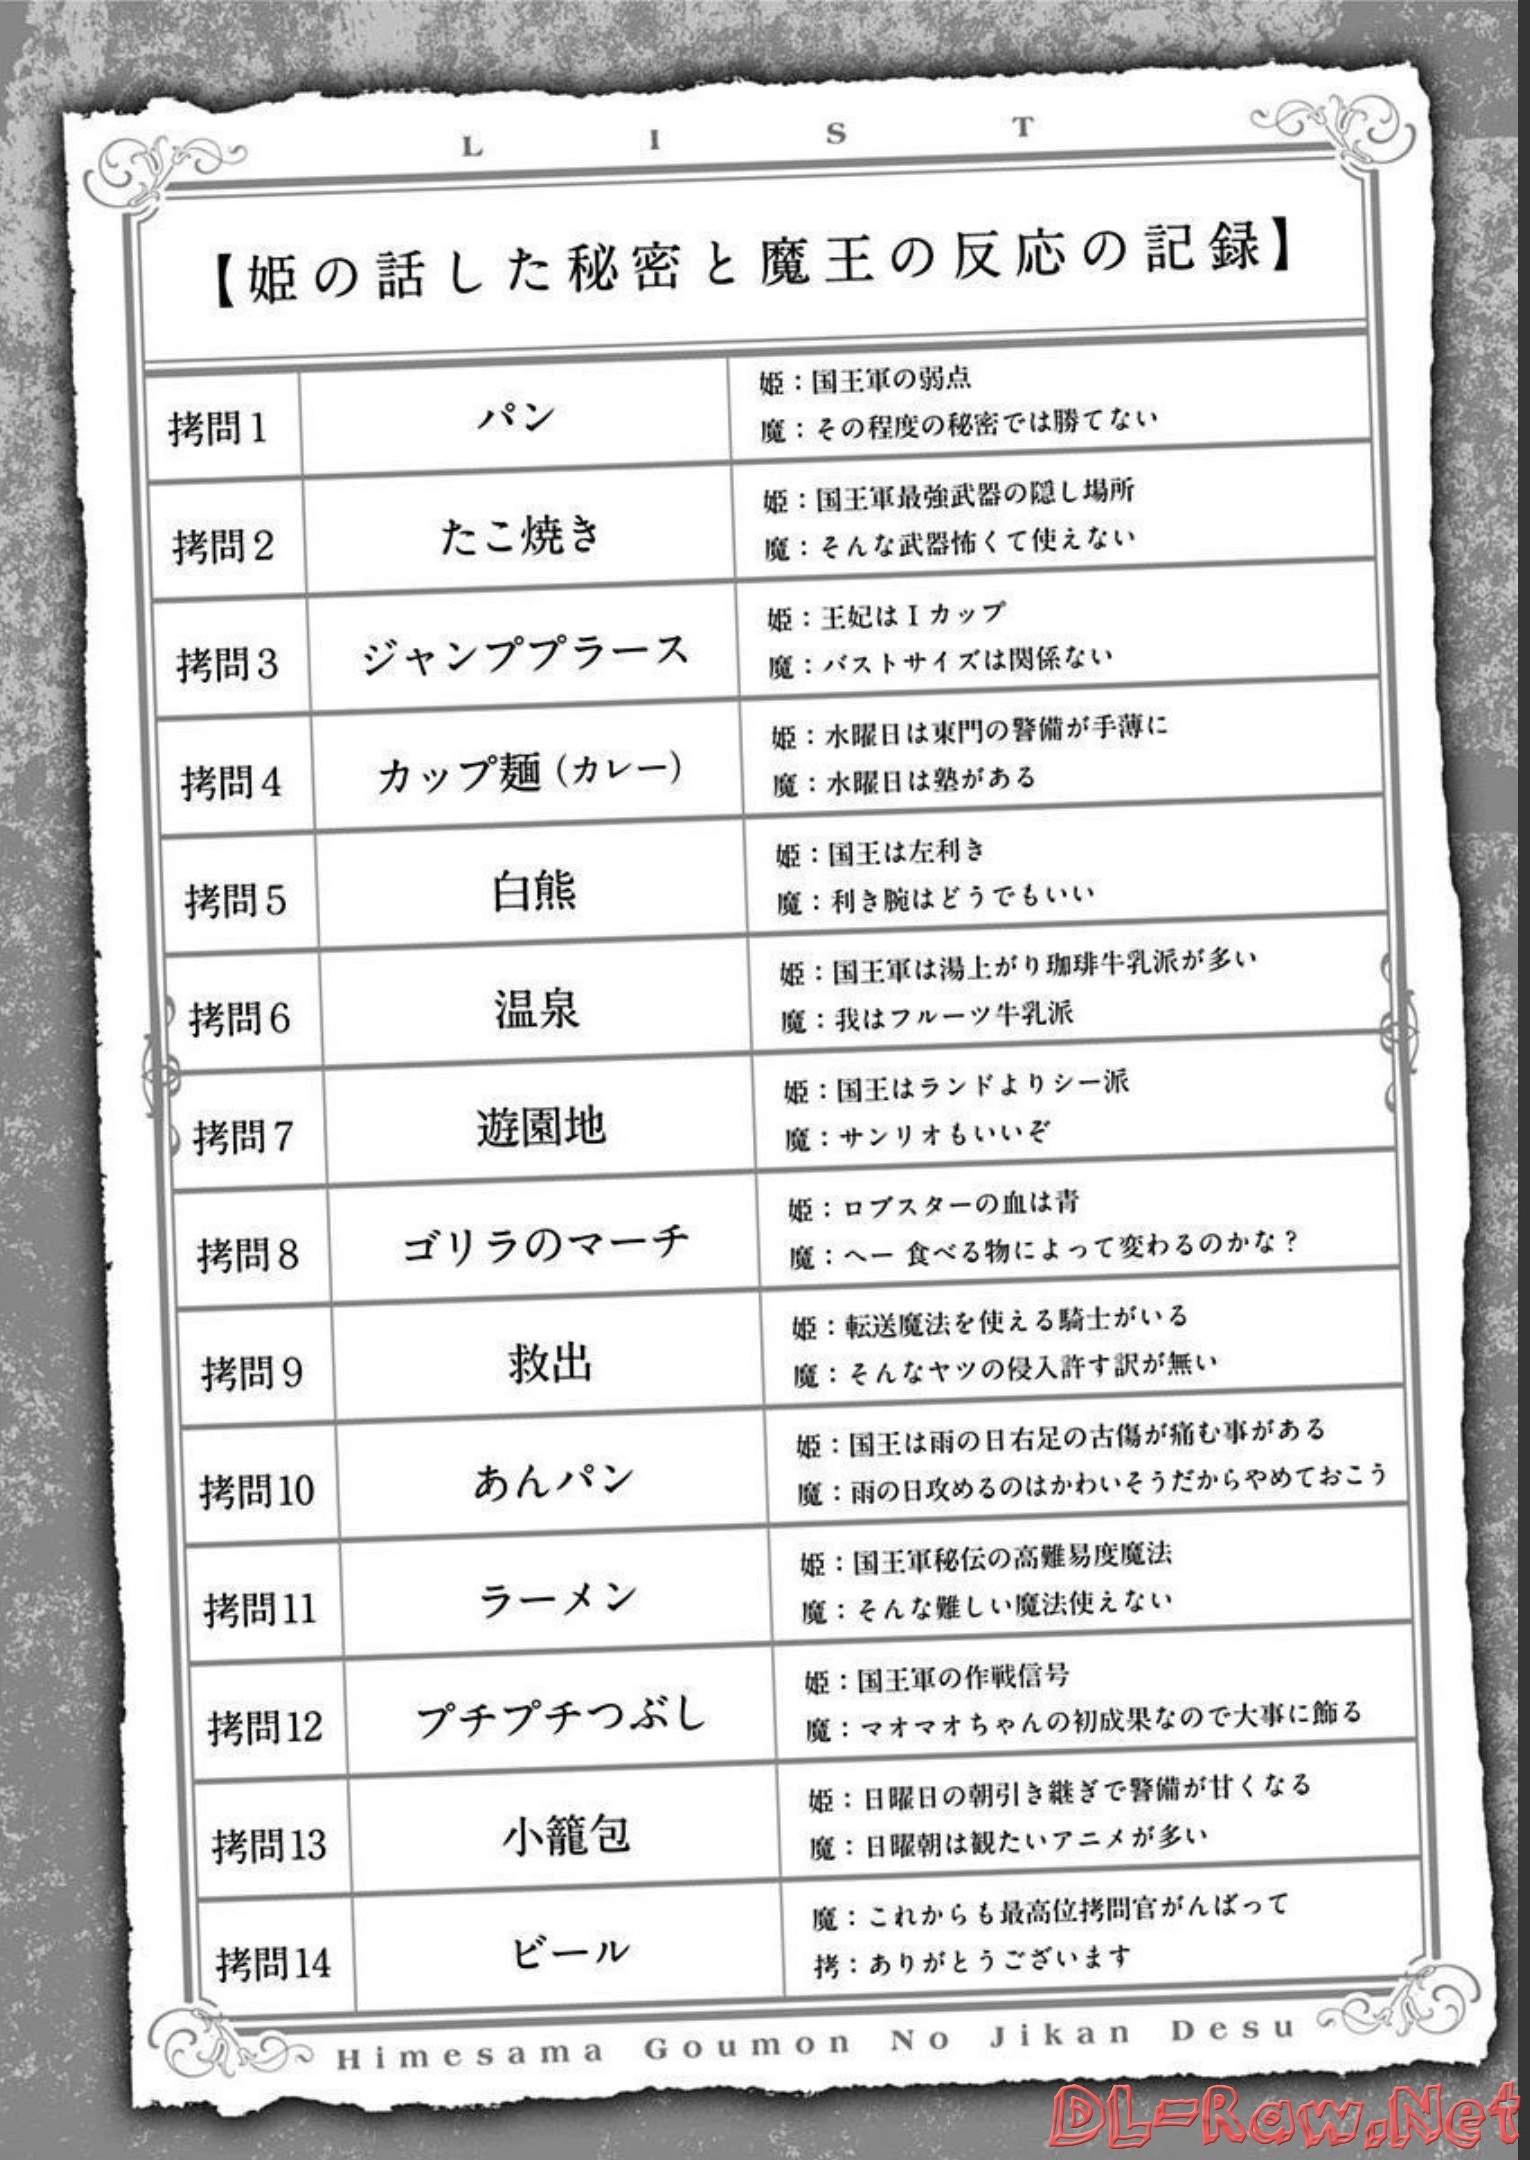 LIST
【姫の話した秘密と魔王の反応の記録】
拷問1
パン
姫：国王軍の弱点
魔：その程度の秘密では勝てない
拷問2
たこ焼き
姫：国王軍最強武器の隠し場所
魔：そんな武器怖くて使えない
拷問3
ジャンププラース
姫：王妃はIカップ
魔：バストサイズは関係ない
拷問4
カップ麺（カレー）
姫：水曜日は東門の警備が手薄に
魔：水曜日は塾がある
拷問5
白熊
姫：国王は左利き
魔：利き腕はどうでもいい
拷問6
温泉
姫：国王軍は湯上がり珈琲牛乳派が多い
魔：我はフルーツ牛乳派
拷問7
遊園地
姫：国王はランドよりシー派
魔：サンリオもいいぞ
拷問8
ゴリラのマーチ
姫：ロブスターの血は青
魔：へー 食べる物によって変わるのかな？
拷問9
救出
姫：転送魔法を使える騎士がいる
魔：そんなヤツの侵入許す訳が無い
拷問10
あんパン
姫：国王は雨の日右足の古傷が痛む事がある
魔：雨の日攻めるのはかわいそうだからやめておこう
拷問11
ラーメン
姫：国王軍秘伝の高難易度魔法
魔：そんな難しい魔法使えない
拷問12
プチプチつぶし
姫：国王軍の作戦信号
魔：マオマオちゃんの初成果なので大事に飾る
拷問13
小籠包
姫：日曜日の朝引き継ぎで警備が甘くなる
魔：日曜朝は観たいアニメが多い
拷問14
ビール
魔：これからも最高位拷問官がんばって
拷：ありがとうございます
Himesama Goumon No Jikan Desu
DL-Raw.Net